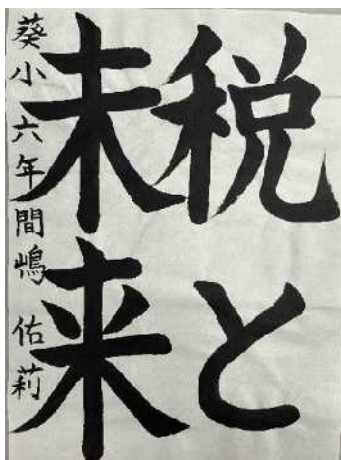 税と
未来
葵小六年間嶋佑莉